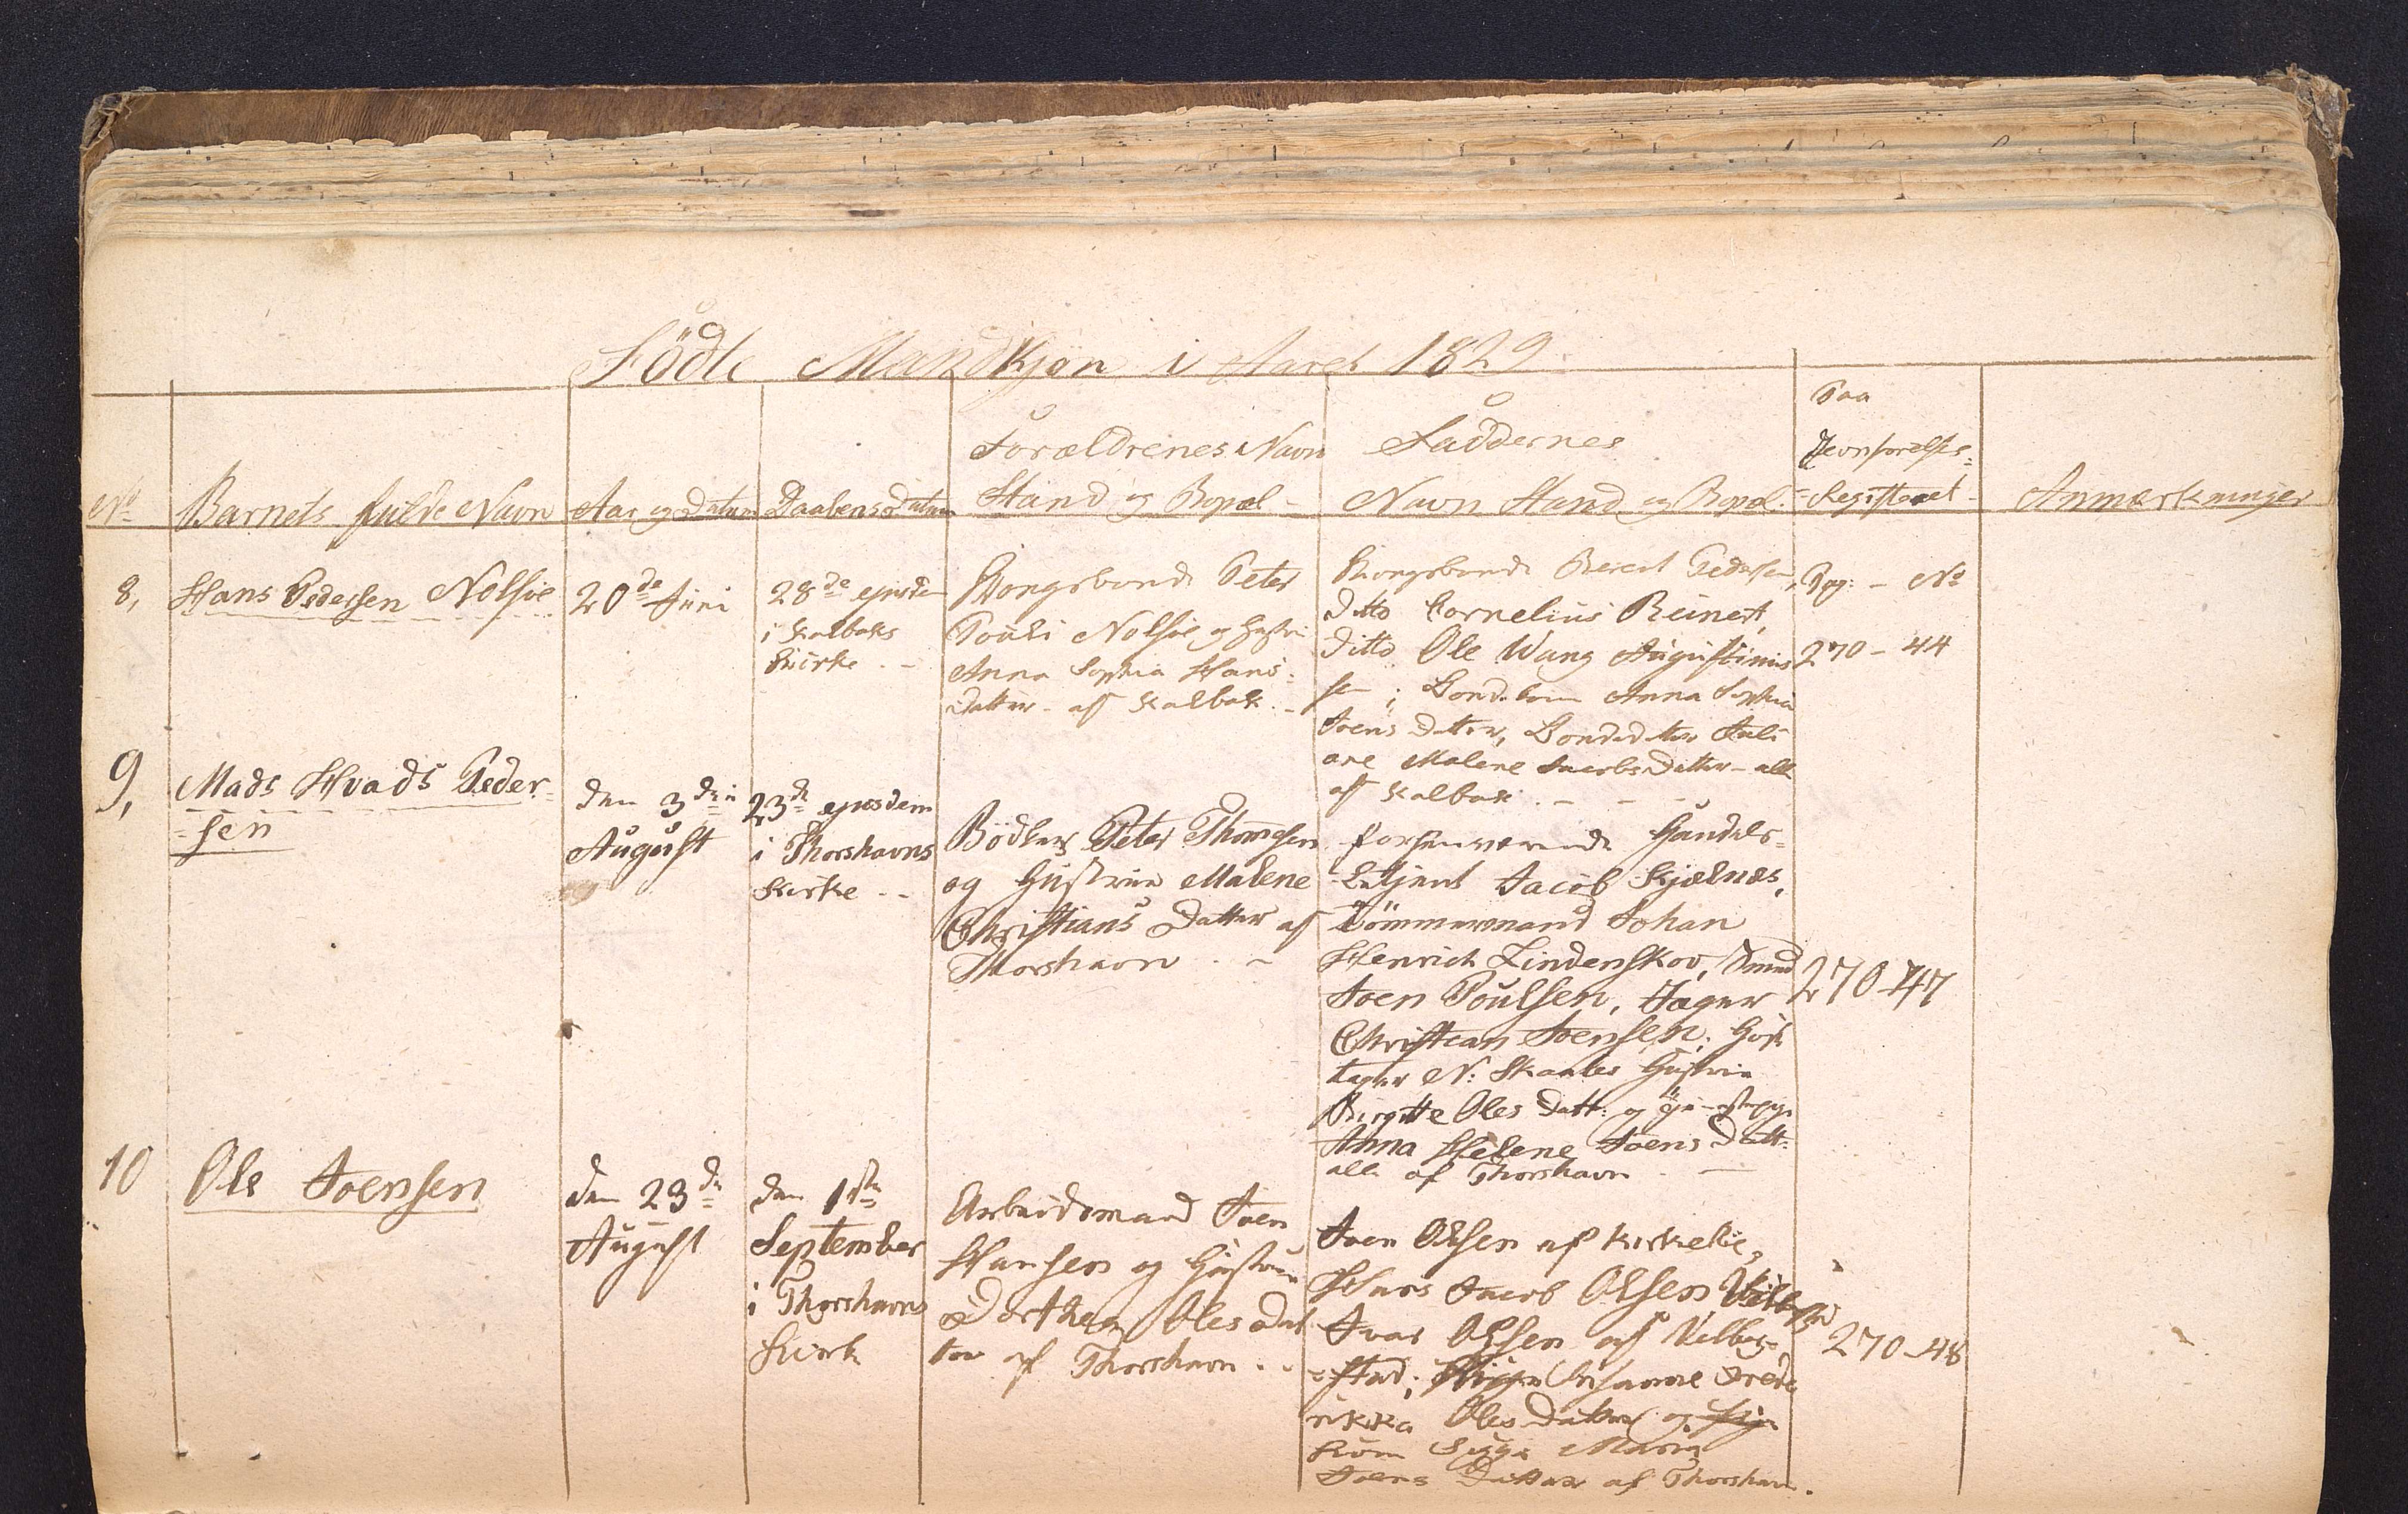 Födte Mandkjøn i Aaret 1829
No
Barnets fulde Navn
Aar og Datum
Daabens Datum
Forældrenes Navn
Stand og Bopæl
Faddernes
Navn Stand og Bopæl.
Paa
Jevnførelses-
Registeret
Anmærkninger
8,
Hans Pedersen Nolsöe
20de Juni
28de ejusdem
i Kalbaks
Kirke
Kongsbonde Peter
Pouli Nolsöe og Hustrue
Anna Sophia Hans-
Datter af Kalbak
Kongsbonde Berent Pedersen,
ditto Cornelius Reinert,
ditto Ole Wang Augustinus
sen; Anna Sophia
Joens Datter, Bondedatter Juli
ane Malene Jacobs Datter - alle
af Kalbak
Pag: - No
270 - 44
9,
Mads Hvads Peder-
sen
den 3die
August
23de ejusdem
i Thorshavns
Kirke
Bödker Peter Thomsen
og Hustrue Malene
Christians Datter af
Thorshavn
forhenværende Handels-
betjent Jacob Kjælnæs,
Tömmermand Johan
Henrich Lindenskov, Smed
Joen Poulsen, Jager
Christian Joensen; Huus
N: Skaales Hustrue
Birgitte Oles Datt: og
Anna Helene Joens Datt:
alle af Thorshavn
270-47
10
Ole Joensen
den 23de
August
den 1ste
September
i Thorshavns
Kirke
Arbeidsmand Joen
Hansen og Hustrue
Dorthea Oles Dat
ter af Thorshavn
Joen Olsen af Kirkeböe,
Hans Jacob Olsen
Ivar Olsen af Velbe-
stad; Susanne Frede
rikka Oles Datter og
Maria
Joens Datter af Thorshavn.
270-48